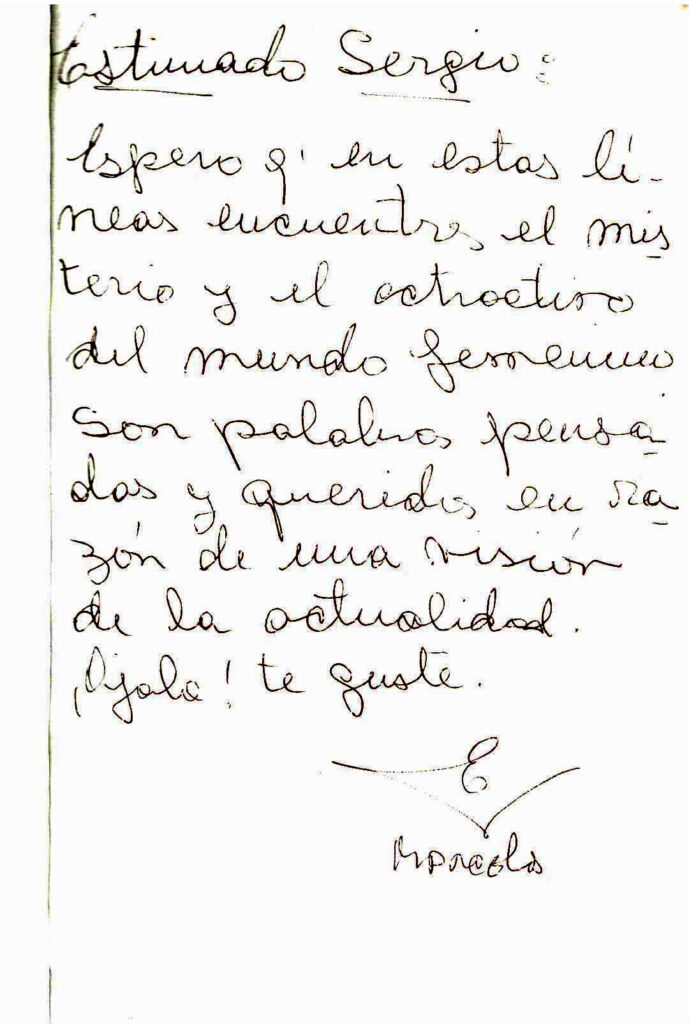 Estimado Sergio:
Espero q' en estas lí-
neas encuentres el mis
terio y el atractivo
del mundo femenino
Son palabras pensa
das y queridas en ra
zón de una visión
de la actualidad.
¡Ojala! te guste.
E
Marcela